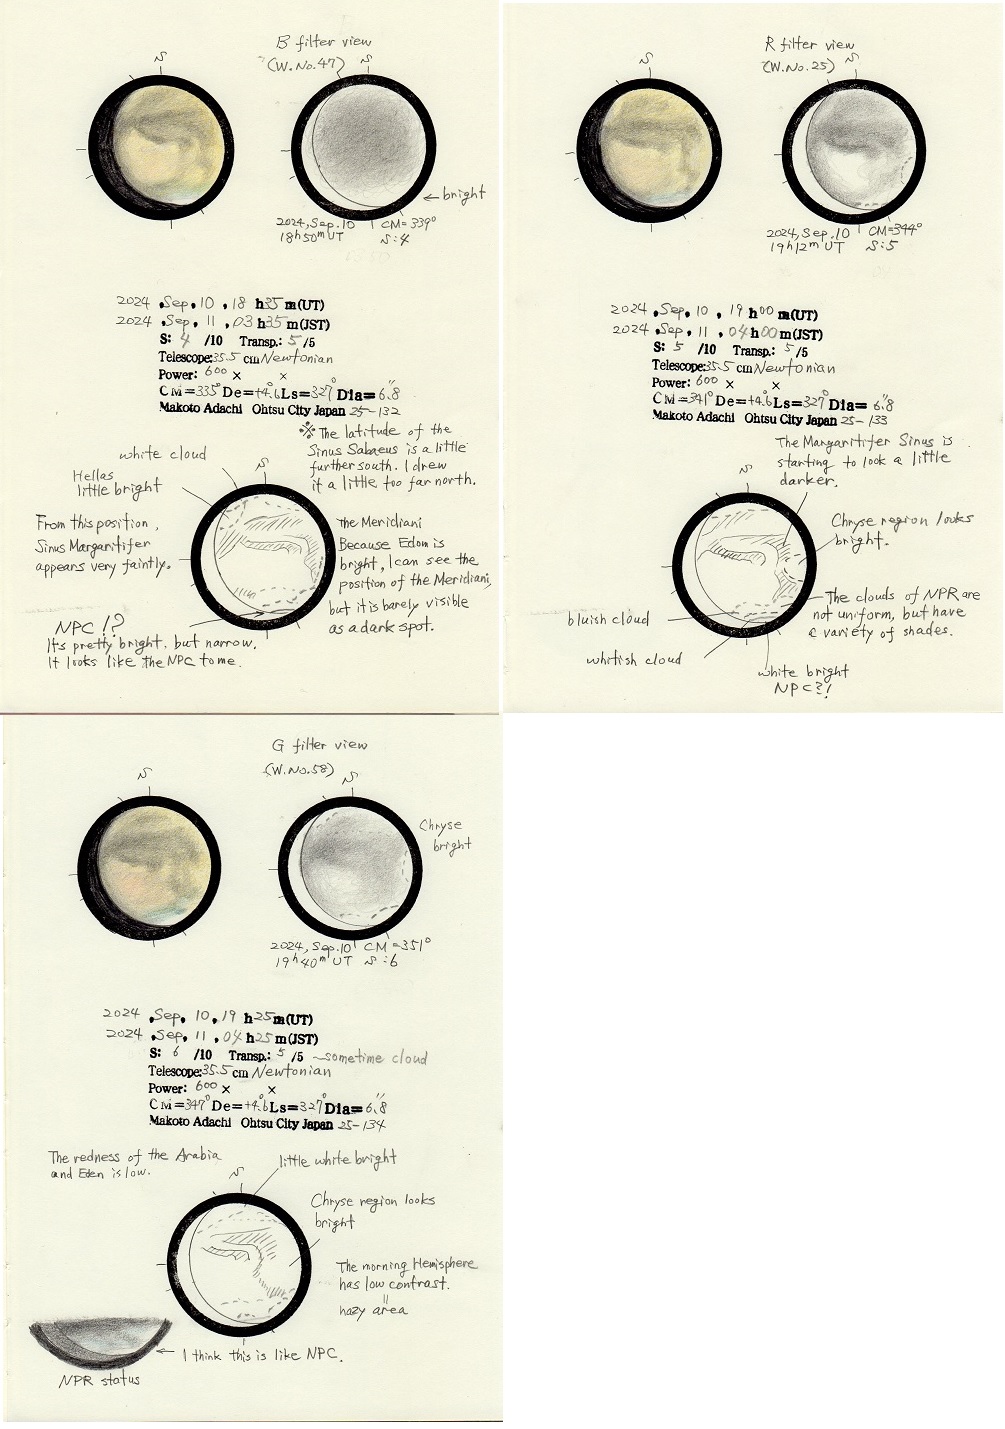 B filter view
(W.No.47)
S
S
← bright
2024, Sep. 10 CM=339°
18h50mUT S:4
2024, Sep. 10, 18h35m(UT)
2024, Sep. 11, 03h35m(JST)
S: 4 /10 Transp.: 5 /5
Telescope:35.5 cm Newtonian
Power: 600 × ×
CM=335° De=+4.6° Ls=327° Dia=6.8"
Makoto Adachi Ohtsu City Japan 25-132
※ The latitude of the
Sinus Sabaeus is a little
further south. I drew
it a little too far north.
white cloud
S
Hellas
little bright
From this position,
Sinus Margaritifer
appears very faintly.
The Meridiani
Because Edom is
bright, I can see the
position of the Meridiani,
but it is barely visible
as a dark spot.
NPC!?
It's pretty bright, but narrow.
It looks like the NPC to me.
R filter view
(W.No.25)
S
S
2024, Sep. 10 CM=344°
19h12mUT S:5
2024, Sep. 10, 19h00m(UT)
2024, Sep. 11, 04h00m(JST)
S: 5 /10 Transp.: 5 /5
Telescope:35.5 cm Newtonian
Power: 600 × ×
CM=341° De=+4.6° Ls=327° Dia=6.8"
Makoto Adachi Ohtsu City Japan 25-133
The Margaritifer Sinus is
starting to look a little
darker.
S
Chryse region looks
bright.
The clouds of NPR are
not uniform, but have
a variety of shades.
bluish cloud
whitish cloud
white bright
NPC?!
G filter view
(W.No.58)
S
S
Chryse
bright
2024, Sep. 10 CM=351°
19h40mUT S:6
2024, Sep. 10, 19h25m(UT)
2024, Sep. 11, 04h25m(JST)
S: 6 /10 Transp.: 5 /5 ~sometime cloud
Telescope:35.5 cm Newtonian
Power: 600 × ×
CM=347° De=+4.6° Ls=327° Dia=6.8"
Makoto Adachi Ohtsu City Japan 25-134
The redness of the Arabia
and Eden is low.
little white bright
S
Chryse region looks
bright
The morning Hemisphere
has low contrast.
hazy area
← I think this is like NPC.
NPR status